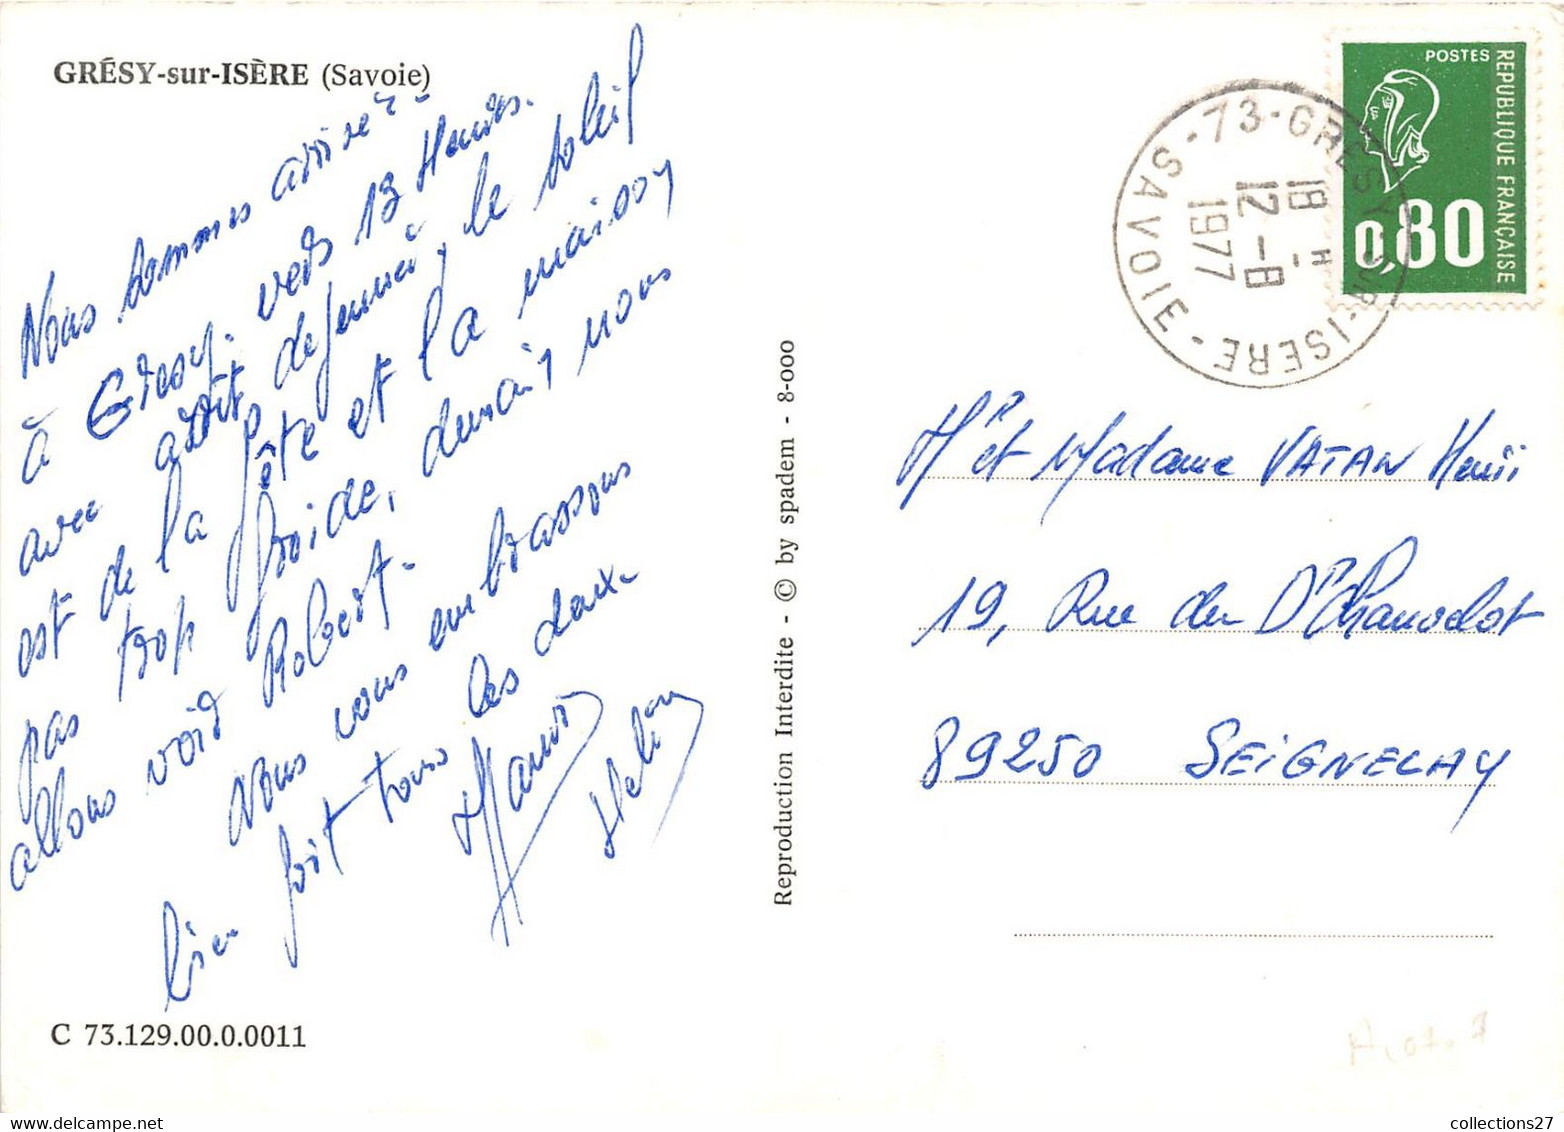 GRÉSY-sur-ISÈRE (Savoie)
Nous sommes arrivé
à Gresy. vers 13 Heures.
avoir dejeuné, le soleil
est de la fête et la maison
pas trop froide, demain nous
allons voir Robert.
Nous vous embrassons
bien fort tous les deux.
C 73.129.00.0.0011
Reproduction Interdite - © by spadem - 8-000
POSTES
REPUBLIQUE FRANÇAISE
0,80
73-GRESY-SUR-ISERE-SAVOIE-
18 H
12-8
1977
Mr et Madame VATAN Henri
19, Rue du Dr Chauvelot
89250 SEIGNELAY
collections27